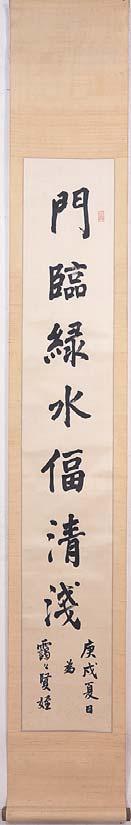 門臨緑水偪清淺
庚戌夏日
為
靄〻賢姪